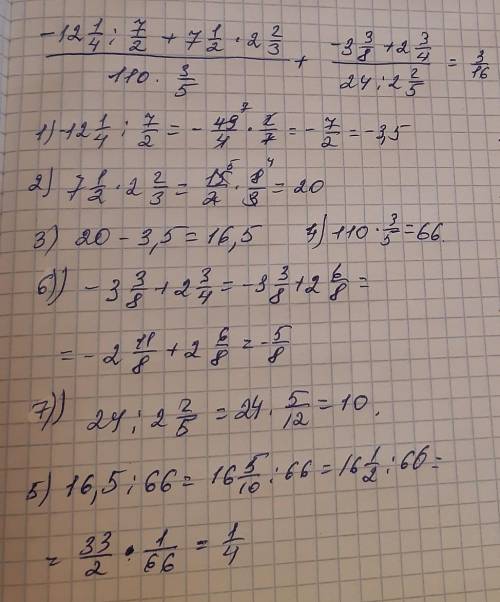 (-12 1/4 : 7/2 + 7 1/2 · 2 2/3) / (110 · 3/5) + (-3 3/8 + 2 3/4) / (24 : 2 2/5) = 3/16
1) -12 1/4 : 7/2 = - 49/4 · 2/7 = - 7/2 = -3,5
2) 7 1/2 · 2 2/3 = 15/2 · 8/3 = 20
3) 20 - 3,5 = 16,5 4) 110 · 3/5 = 66.
6)) - 3 3/8 + 2 3/4 = -3 3/8 + 2 6/8 =
= - 2 11/8 + 2 6/8 = - 5/8
7)) 24 : 2 2/5 = 24 · 5/12 = 10.
5) 16,5 : 66 = 16 5/10 : 66 = 16 1/2 : 66 =
= 33/2 · 1/66 = 1/4